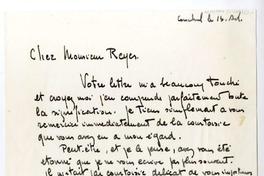 Cher Monsieur Reyes
Votre lettre m'a beaucoup touché
et croyez moi j'en comprends parfaitement toute
la signification. Je tiens simplement à vous
remercier immédiatement de la courtoisie
que vous avez eu à mon égard.
Peut-être, et je le pense, avez vous été
étonné que je ne vous écrive pas plus souvent.
Il courtoisie délicat de vous